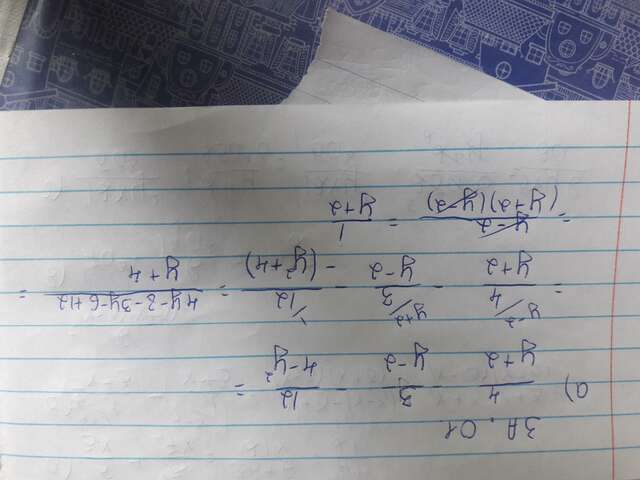 ЗА. 01
а) 4/(y+2) - 3/(y-2) - 12/(4-y²) =
= 4/(y+2) \y-2 - 3/(y-2) \y+2 - 12/(-(y²+4)) \1 = (4y-2-3y-6+12)/(y+4) =
= (y-2)/((y+2)(y-2)) = 1/(y+2)